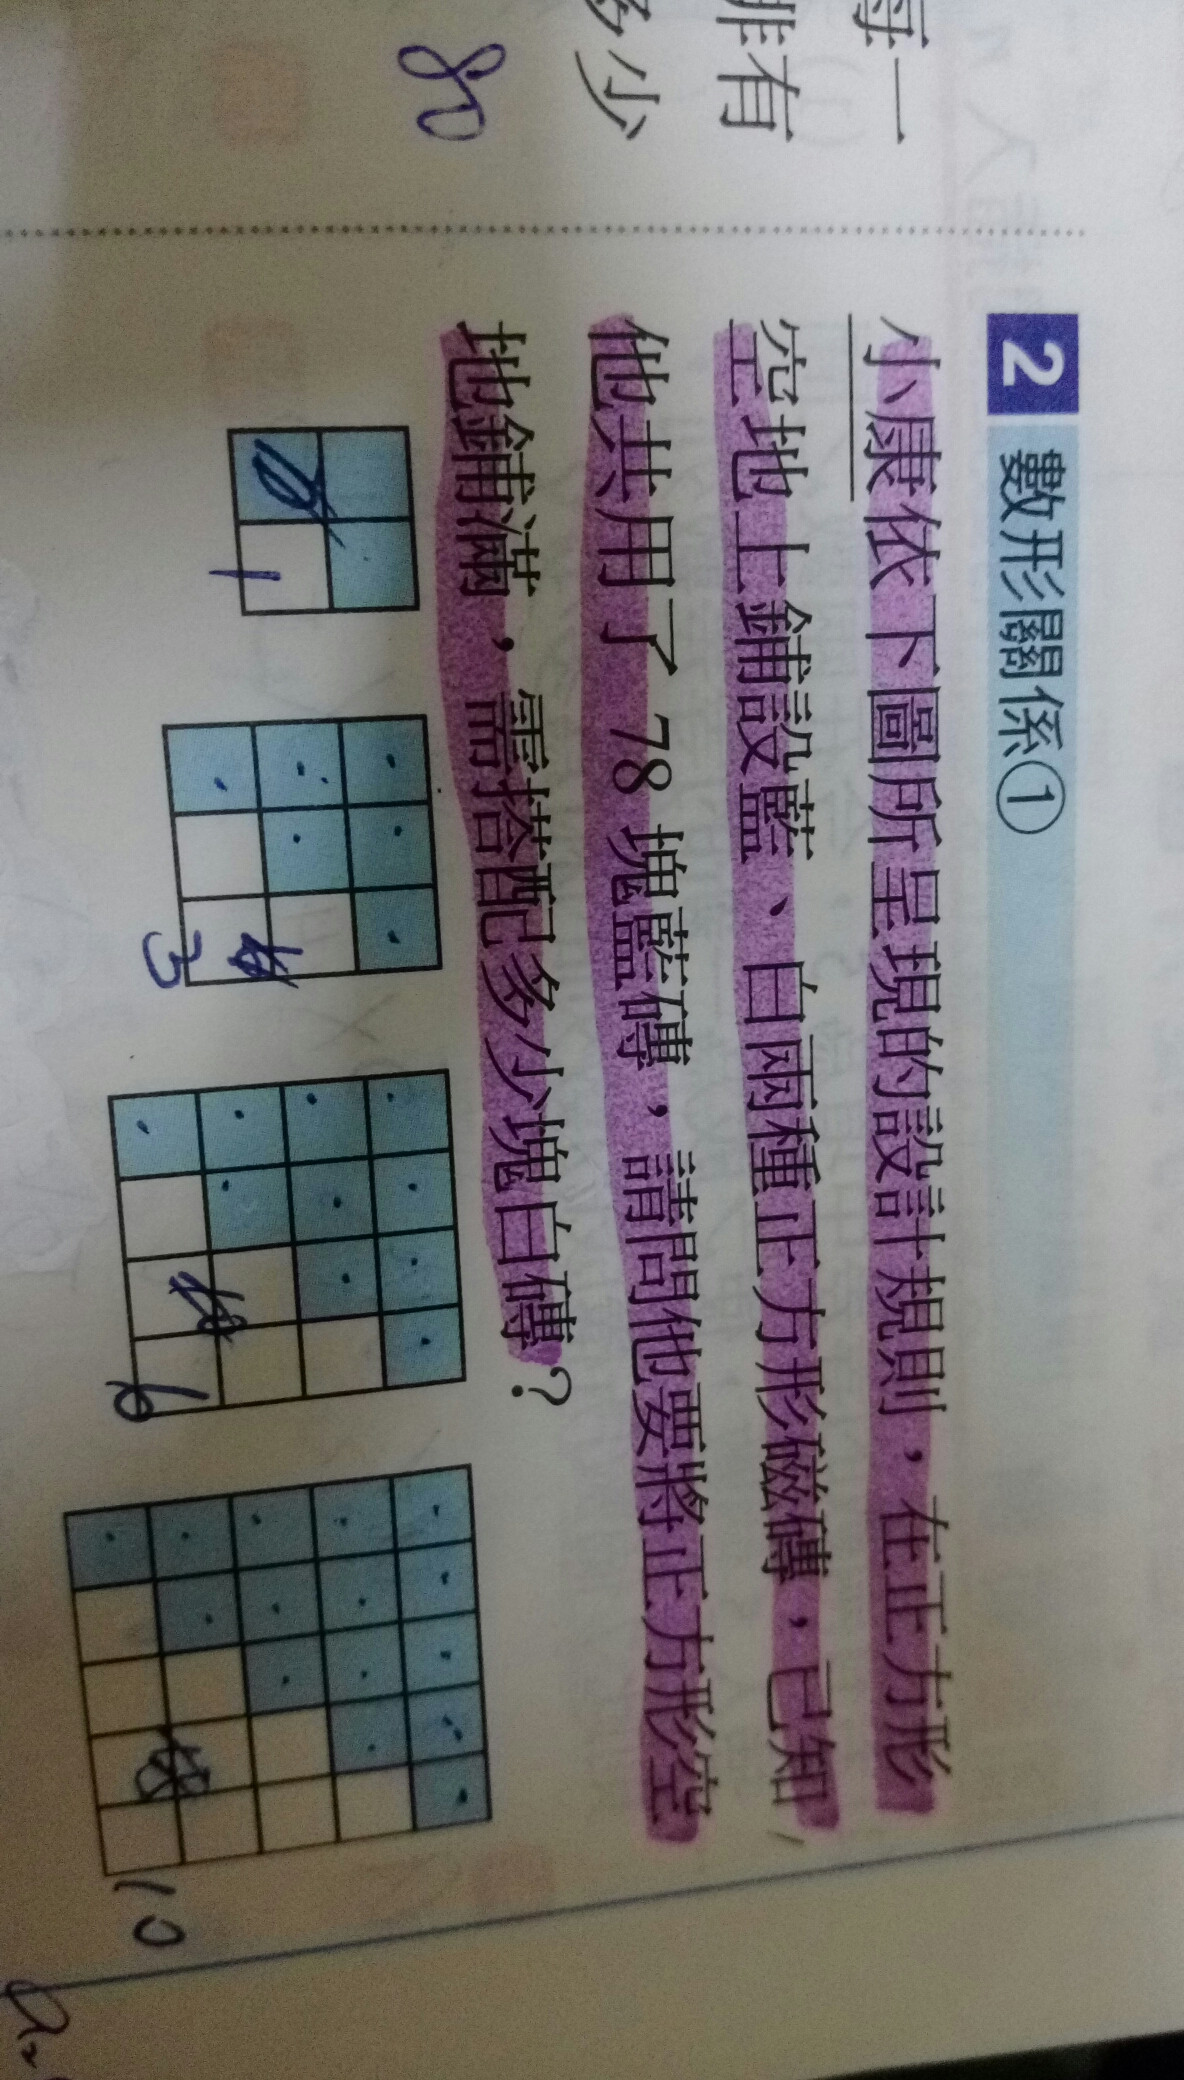 每一
排有
多少
80
2 數形關係①
小康依下圖所呈現的設計規則，在正方形
空地上鋪設藍、白兩種正方形磁磚，已知
他共用了 78 塊藍磚，請問他要將正方形空
地鋪滿，需搭配多少塊白磚？
1
3
6
10